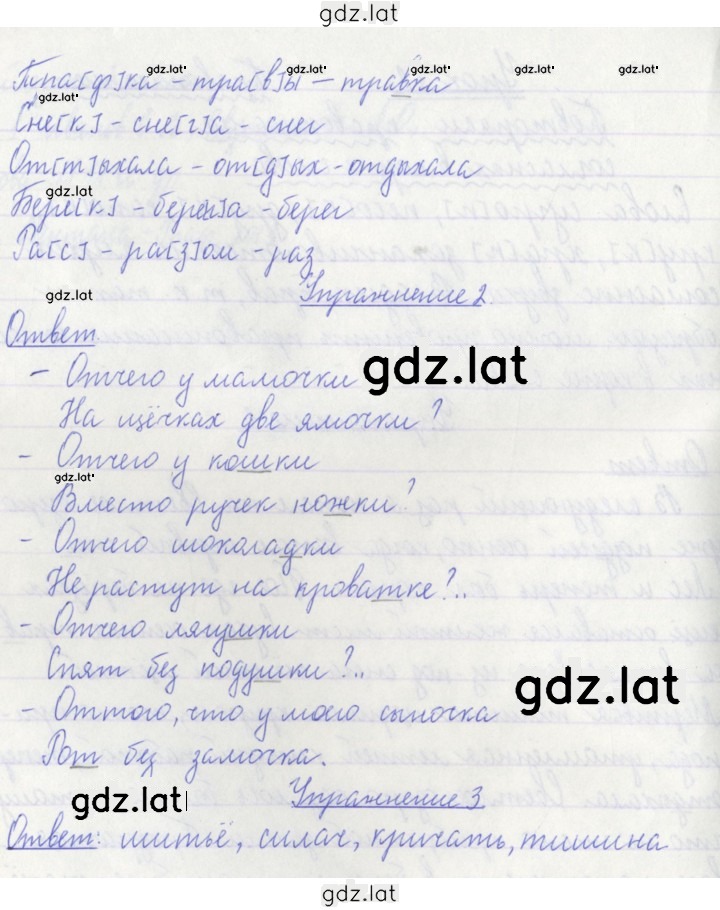 gdz.lat
gdz.lat gdz.lat gdz.lat gdz.lat
Тпа[ф]ка - тра[в]ы - травка
gdz.lat
Сне[к] - сне[г]а - снег
От[т]ыхала - от[д]ых - отдыхала
gdz.lat
Бере[к] - берега - берег
Ра[с] - ра[з]ом - раз
gdz.lat
Упражнение 2
Ответ
- Отчего у мамочки
gdz.lat
На щёчках две ямочки?
- Отчего у кошки
gdz.lat
Вместо ручек ножки?
- Отчего шоколадки
Не растут на кроватке?..
- Отчего лягушки
Спят без подушки?..
gdz.lat
- Оттого, что у моего сыночка
Рот без замочка.
gdz.lat
Упражнение 3
Ответ: шитьё, силач, кричать, тишина
gdz.lat